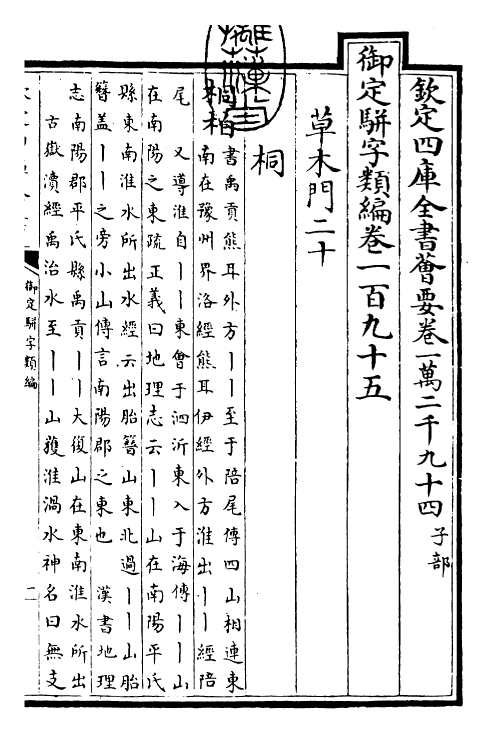 欽定四庫全書薈要卷一萬二千九十四子部
御定駢字類編卷一百九十五
草木門二十
桐
桐柏
書禹貢熊耳外方丨丨至于陪尾傳四山相連東
南在豫州界洛經熊耳伊經外方淮出丨丨經陪
尾 又導淮自丨丨東會于泗沂東入于海傳丨丨山
在南陽之東疏正義曰地理志云丨丨山在南陽平氏
縣東南淮水所出水經云出胎簪山東北過丨丨山胎
簪盖丨丨之旁小山傳言南陽郡之東也 漢書地理
志南陽郡平氏縣禹貢丨丨大復山在東南淮水所出
古嶽瀆經禹治水至丨丨山獲淮渦水神名曰無支
御定駢字類編